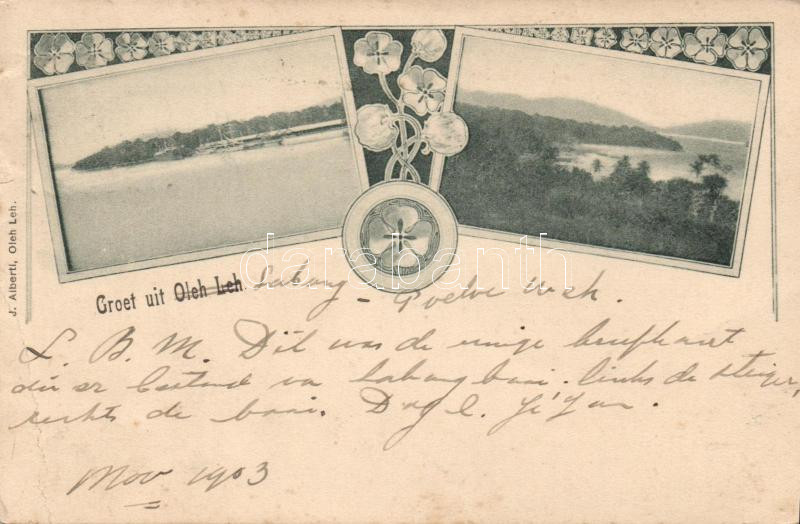 J. Alberti, Oleh Leh.
Groet uit Oleh Leh. Sabang - Poeloe Weh.
L. B. M. Dit was de enige briefkaart
die er bestond va Sabang baai. links de steiger,
rechts de baai. Dag L.
Nov 1903
darabanth.com